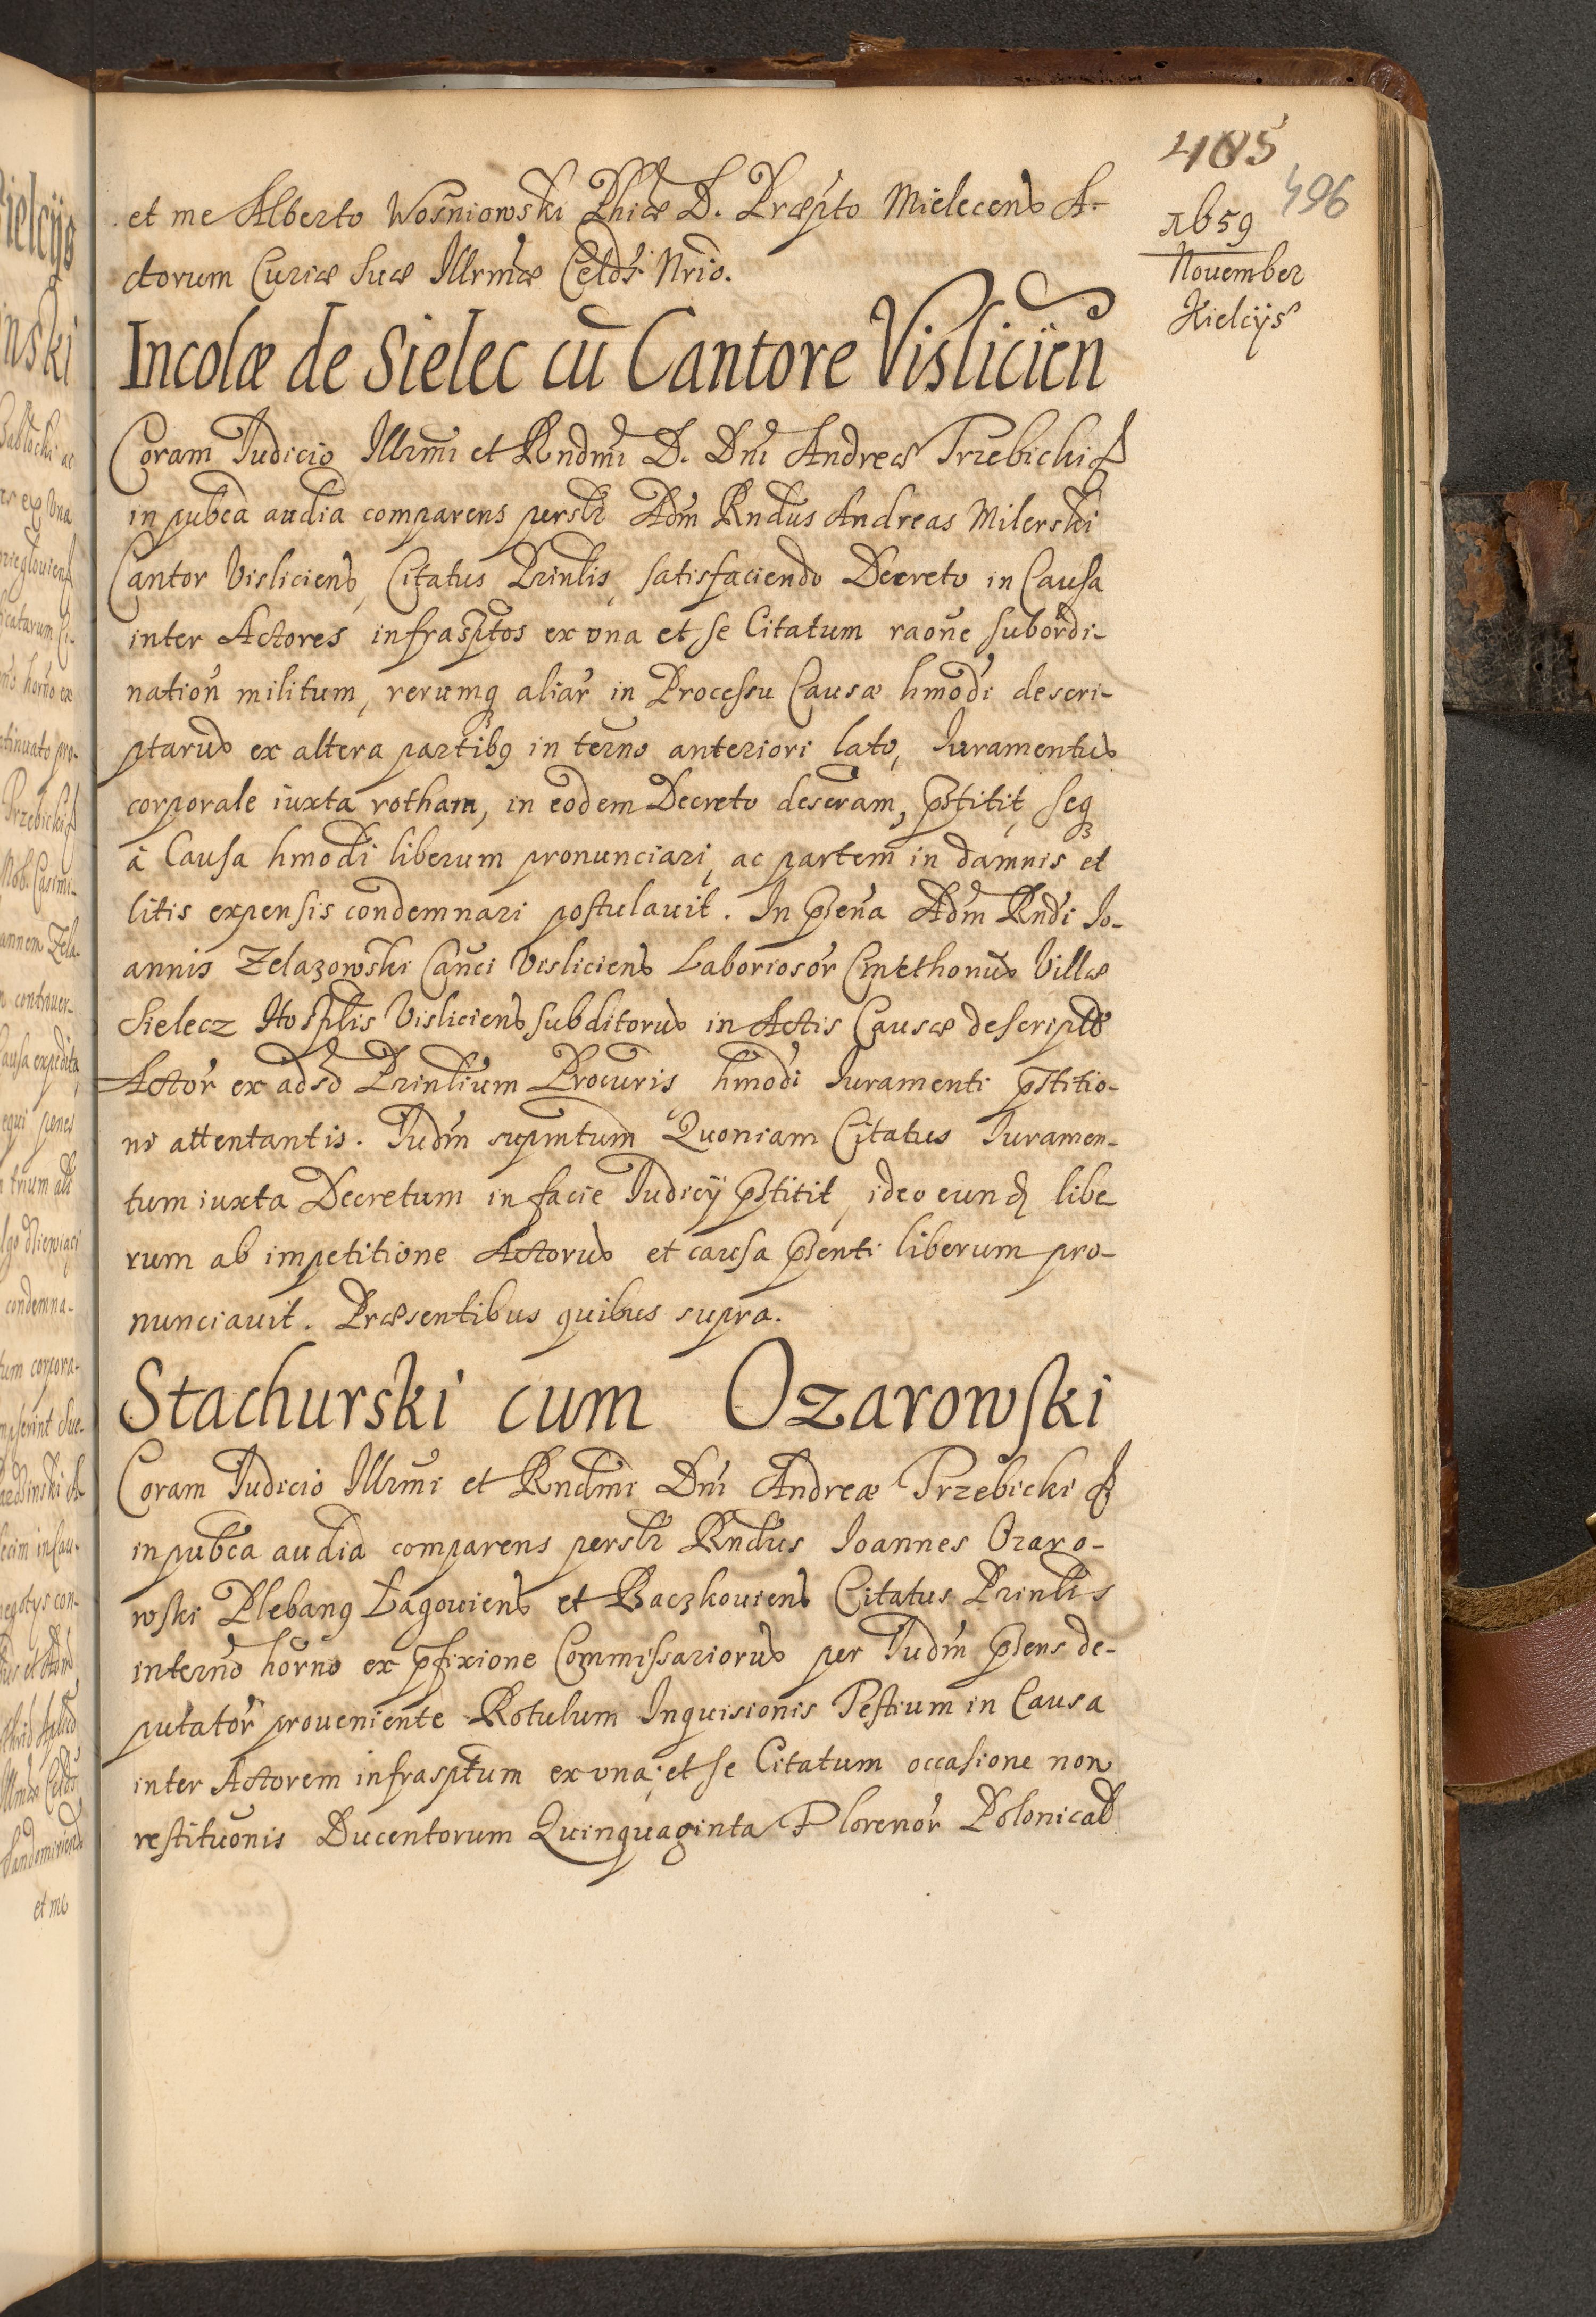 405
496
1659
November
Kielcijs
et me Alberto Wosniowski Phiæ D. Præpto Mielecens A-
ctorum Curiæ Suæ Illrmæ Celds Nrio.
Incolæ de Sielec cū Cantore Vislicien
Coram Iudicio Illrmi et Rndmi D. Dni Andreæ Trzebicki &
in pubca audia comparens perslr Adm Rndus Andreas Milerski
Cantor Visliciens, Citatus Prinlis, satisfaciendo Decreto in Causa
inter Actores infrasptos ex vna et se Citatum raoñe subordi-
nation militum, rerumq aliar in Processu Causæ hmodi descri-
ptarum ex altera partibq in terno anteriori lato, Iuramentum
corporale iuxta rotham, in eodem Decreto descram, pstitit, seq
à Causa hmodi liberum pronunciari, ac partem in damnis et
litis expensis condemnari postulauit. In psena Adm Rndi Io-
annis Zelazowski Canci Visliciens Laboriosor Cmethonum Villæ
Sielecz Hosplis Visliciens subditorum in Actis Causæ descript
Actor ex adso Prinlium Procuris hmodi Iuramenti pstitio-
ni attentantis. Iudm supmtum Quoniam Citatus Iuramen-
tum iuxta Decretum in facie Iudicij pstitit, ideo eund libe
rum ab impetitione Actorum et causa psenti liberum pro-
nunciauit. Præsentibus quibus supra.
Stachurski cum Ozarowski
Coram Iudicio Illrmi et Rndmi Dni Andreæ Trzebicki &
in pubca audia comparens perslr Rndus Ioannes Ozaro-
wski Plebanq Łagouiens et Raczkouiens Citatus Prinlis
in terno horno ex pfixione Commissariorum per Iudm psens de-
putator proueniente Rotulum Inquisionis Testium in Causa
inter Actorem infrasptum ex vna, et se Citatum occasione non
restituonis Ducentorum Quinquaginta Florenor Polonical